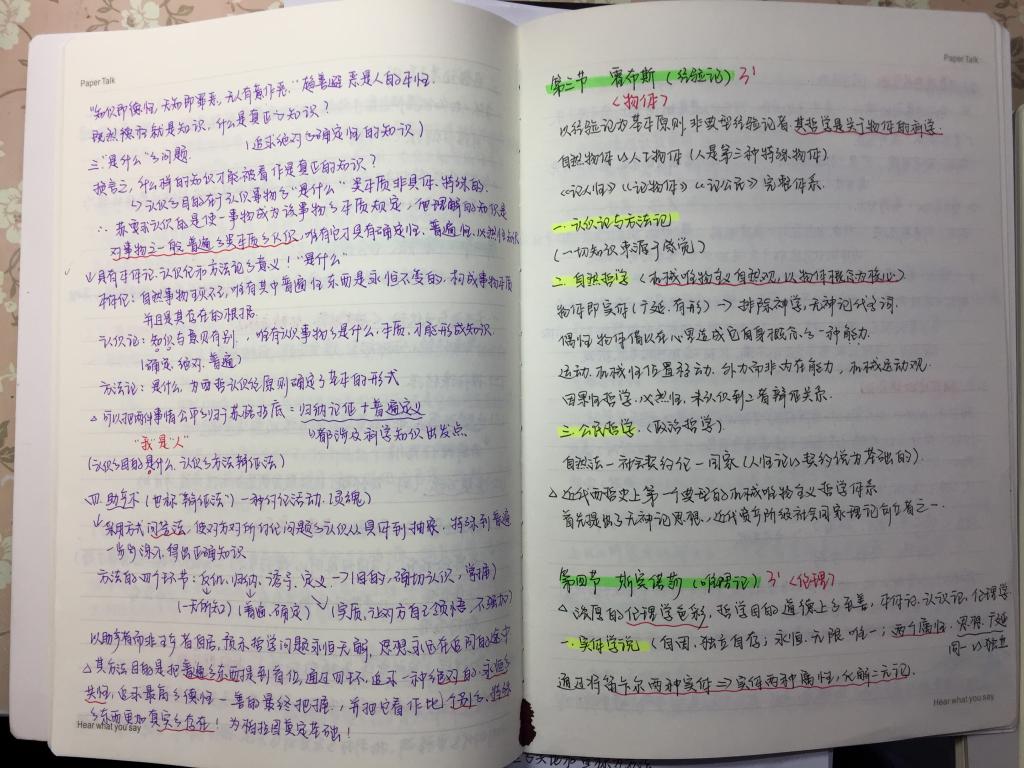 Paper Talk
"知识即德性，无知即罪恶，无人有意作恶。" 趋善避恶是人的本性.
既然德行就是知识，什么是真正的知识？
（追求绝对的确定性的知识）
三."是什么"的问题.
换言之，什么样的知识才能被看作是真正的知识？
认识的目的在于认识事物的"是什么" 类本质非具体、特殊的.
∴ 苏要求认识的是使一事物成为该事物的本质规定，把理解的知识是
对事物之一般普遍的类本质的认识，唯有它才具有确定性、普遍性、必然性知识
具有本体论、认识论和方法论的意义！"是什么"
本体论：自然事物变项不公，唯有其中普遍性东西是永恒不变的，构成事物本质
并且是其存在的根据.
认识论：知识与意见有别，唯有认识事物的是什么、本质，才能形成知识.
（确定、绝对、普遍）
方法论：是什么，为西哲认识论原则确定了基本的形式
△ 可以把两件事情公平的归于苏格拉底：归纳论证＋普遍定义
"我"是"人" 都涉及科学知识出发点
（认识的目的是什么、认识的方法辩证法）
四.助产术（也称"辩证法"）一种讨论活动.（灵魂）
采用方式问答法，使对方对所讨论问题的认识从具体到抽象、特殊到普遍
一步步深入，得出正确知识
方法的四个环节：反讥、归纳、诱导、定义 → 1目的，确切认识，掌握）
（无所知）（普遍、确定）（实质，让对方自己领悟，不强加）
以助产者而非卫士者自居，预示哲学问题永恒无解，思想永远在追问的途中
△ 其方法目的是把普遍的东西提到首位，通过四环，追求一种绝对的、永恒的
共性，追求最高的德性－善的最终把握，并把它看作比个别的、特殊
的东西更加真实的存在！为确拉图奠定基础！
Hear what you say
Paper Talk
第三节 霍布斯（经验论）3'
<物体>
以经验论为基本原则，非典型经验论者 其哲学是关于物体的科学.
自然物体 以人工物体（人是第三种特殊物体）
《论人性》《论物体》《论公民》完整体系.
一.认识论与方法论
（一切知识来源于感觉）
二.自然哲学（机械唯物主义自然观，以物体概念为核心）
物体即实体（广延、有形）→ 排除神学，无神论代名词
偶性：物体借以在心里造成它自身概念的一种能力.
运动：机械性位置移动，外力而非内在能力，机械运动观.
因果性哲学、必然性，未认识到二者辩证关系.
三.公民哲学（政治哲学）
自然法－社会契约论－国家（人性论以契约论为基础的）.
△ 近代西哲史上第一个典型的机械唯物主义哲学体系
首先提出了无神论思想，近代资产阶级社会国家理论创立者之一.
第四节 斯宾诺莎（唯理论）3' <伦理>
△ 浓厚的伦理学色彩，哲学目的道德上的至善，本体论、认识论、伦理学
一.实体学说（自因、独立自存；永恒、无限、唯一；两个属性：思想、广延
同一以独立
通过将笛卡尔两种实体 ⇒ 实体两种属性，化解二元论.
Hear what you say